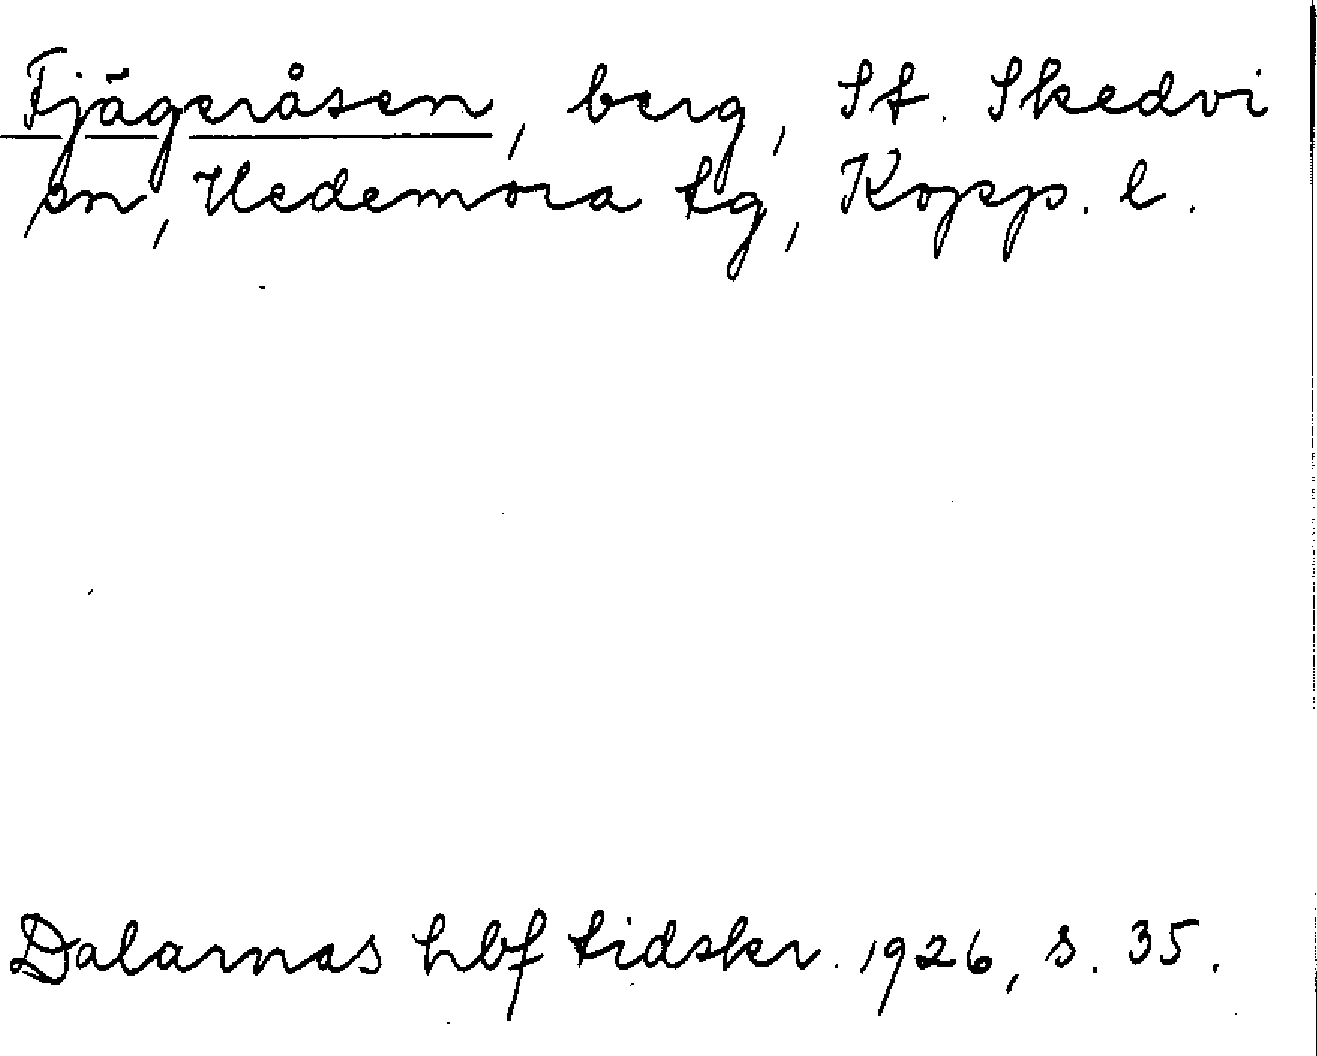 Fjägeråsen, berg, St. Skedvi
sn, Hedemora tg, Kopp. l.
Dalarnas hbf tidskr. 1926, s. 35.